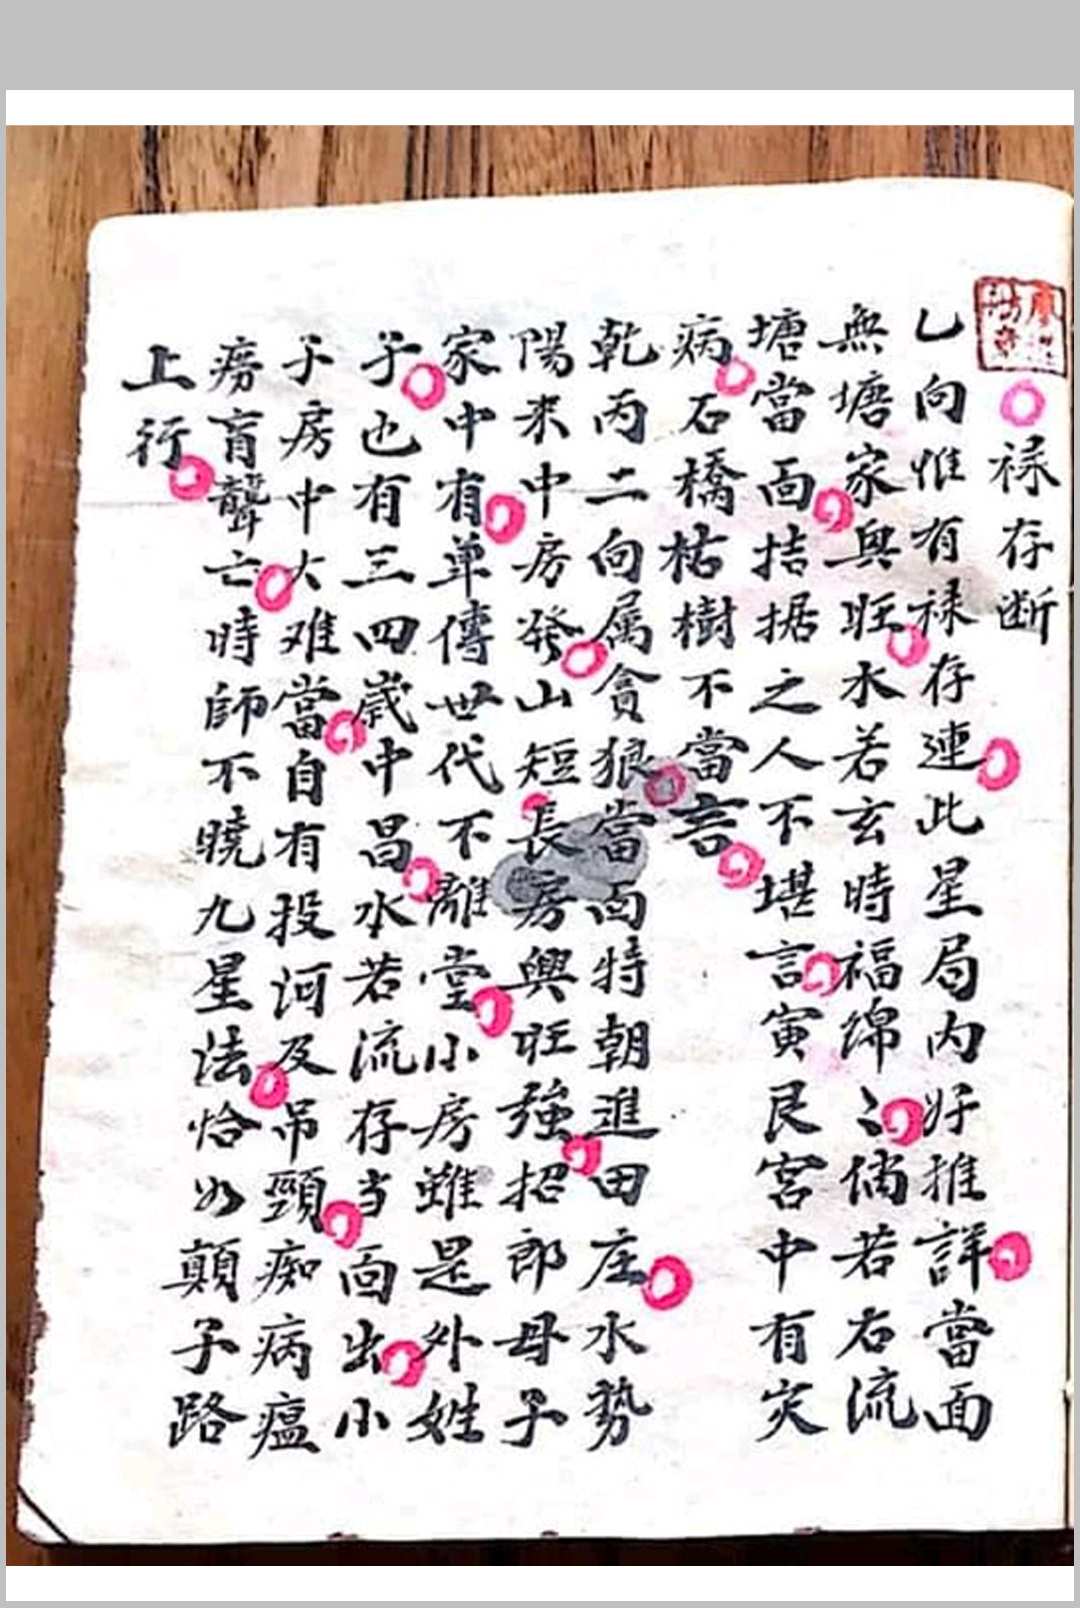 禄存断
乚向惟有禄存連此星局内好推詳當面
無塘家興旺水若玄時福綿〻倘若右流
塘當面拮据之人不堪言寅艮宮中有灾
病石橋枯樹不當言
乾丙二向属貪狼當面特朝進田庄水势
陽来中房發山短長房興旺強招郎母子
家中有单傳世代不離堂小房雖是外姓
子也有三四歲中昌水若流存当面出小
子房中大难當自有投河及吊頸痴病瘟
痨盲聾亡時師不曉九星法恰如顛子路
上行